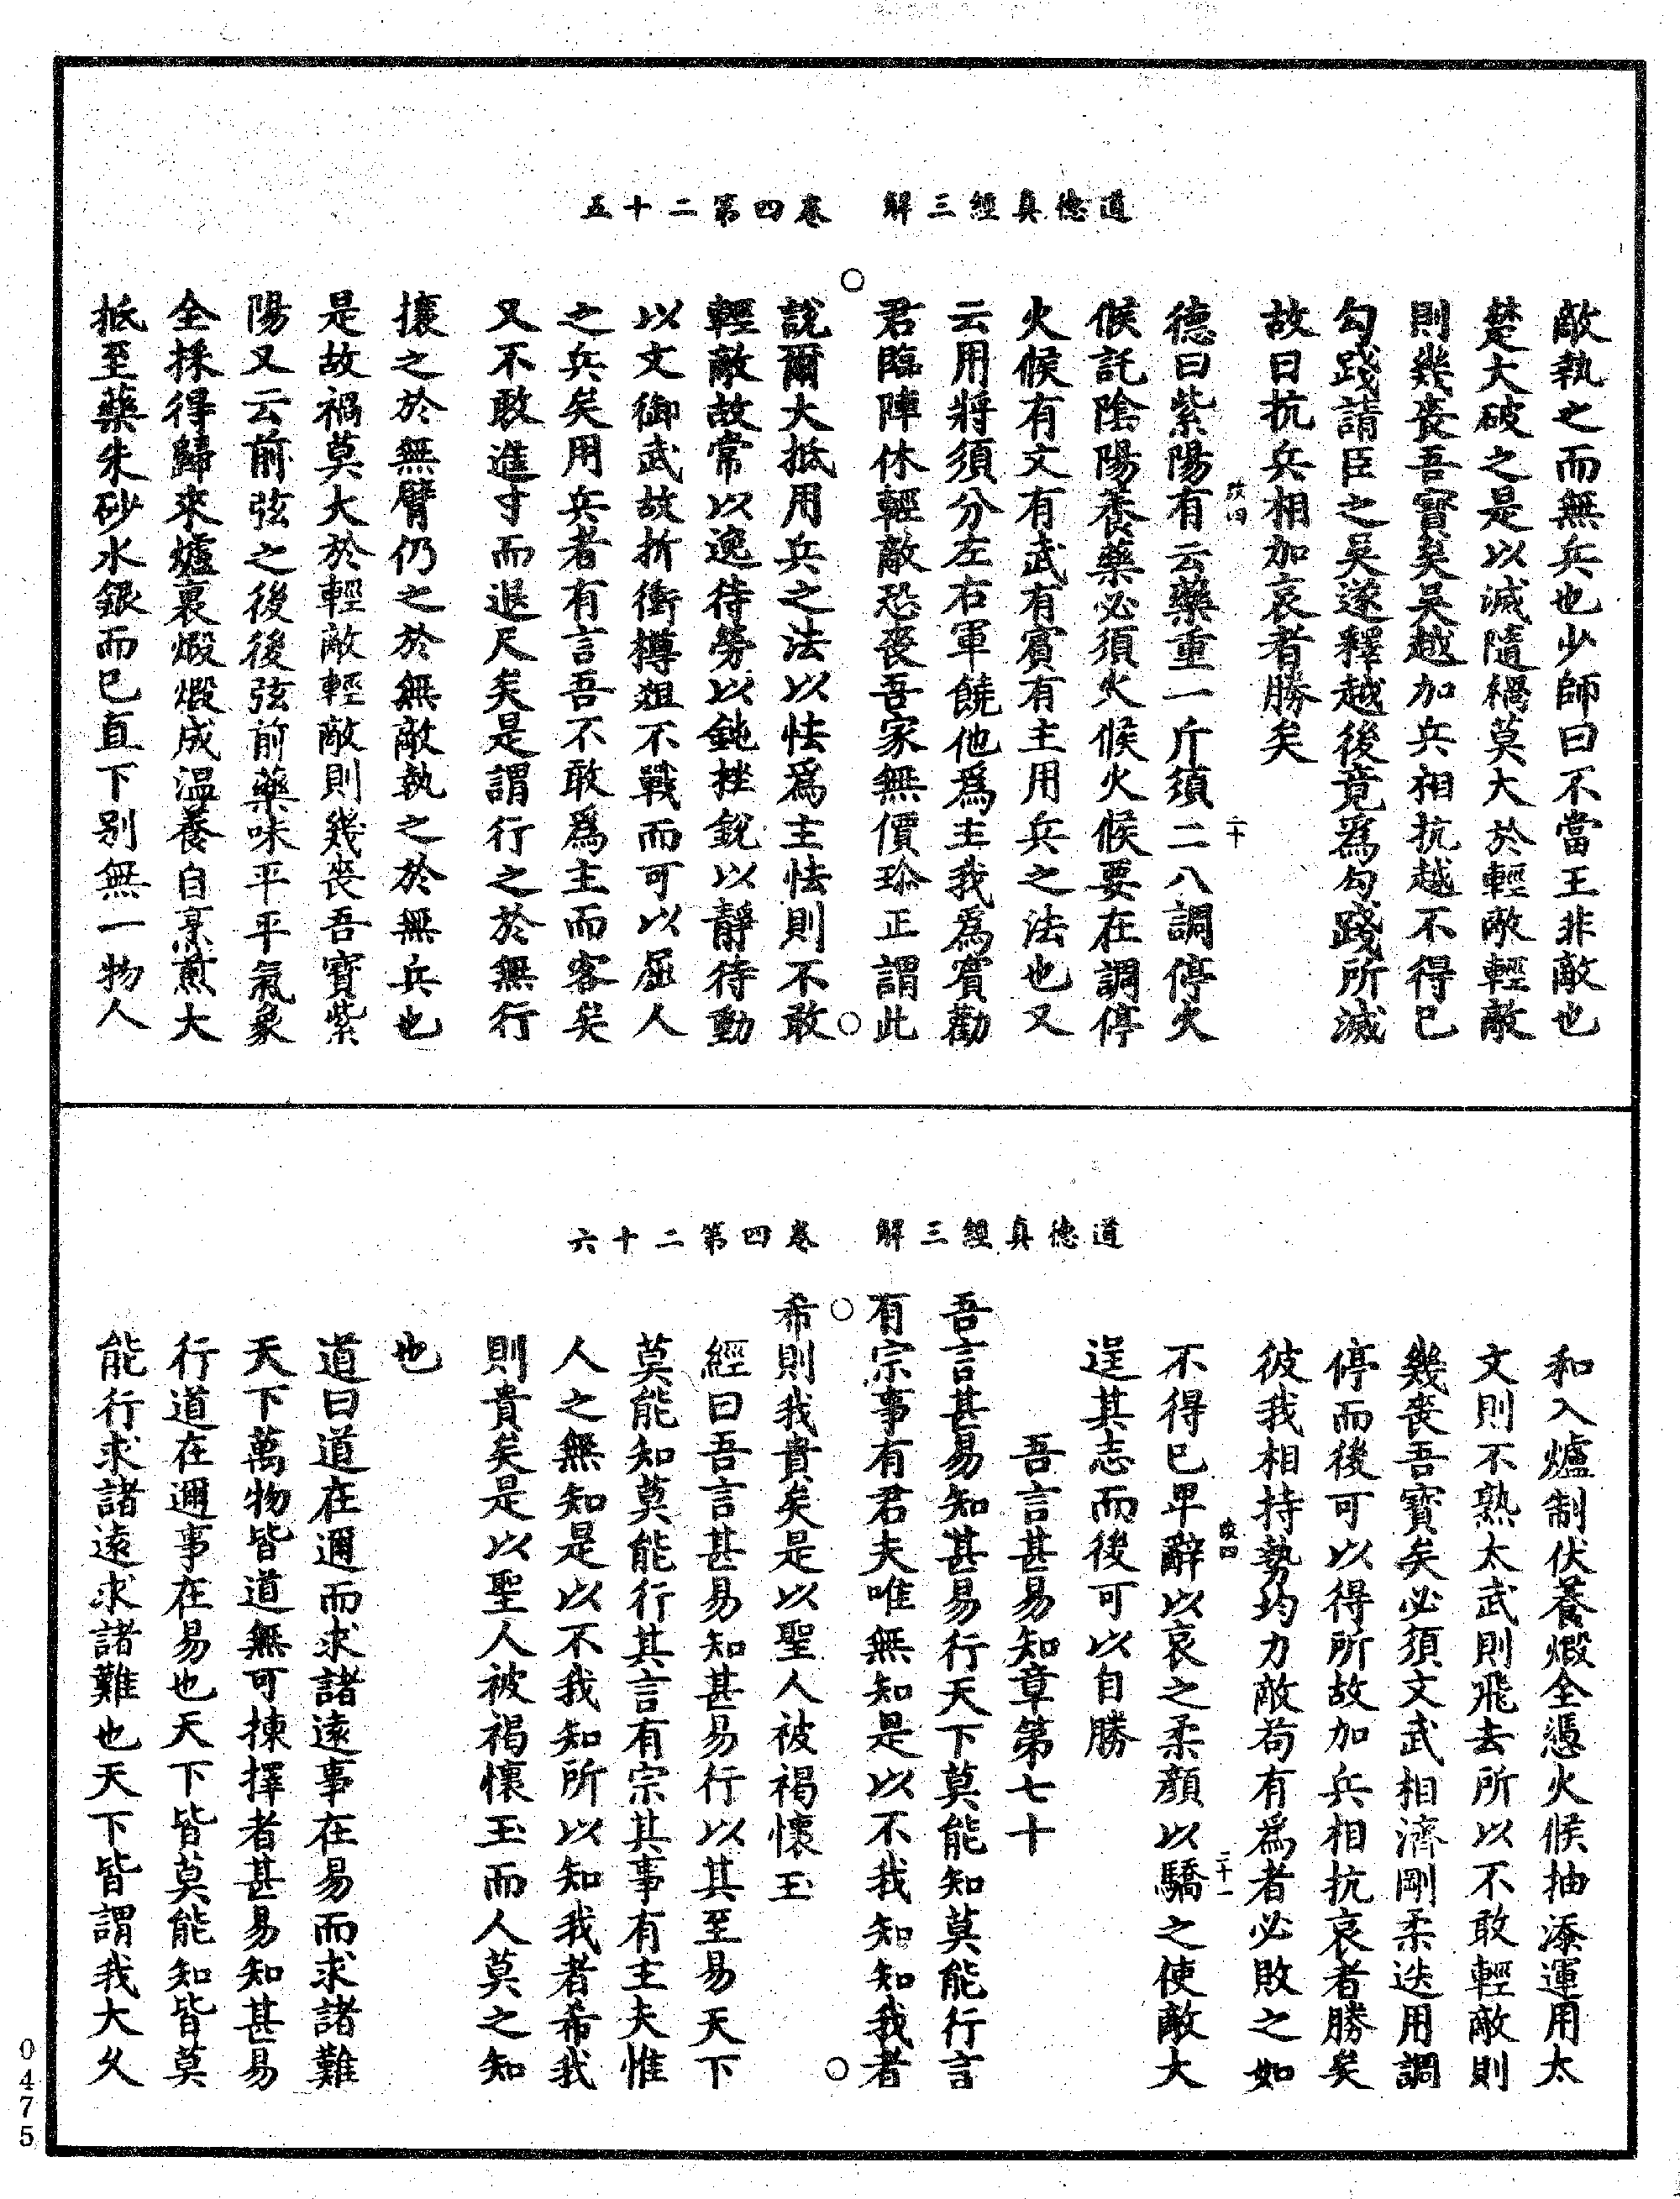 道德真經三解　卷四第二十五
敵執之而無兵也少師曰不當王非敵也
楚大破之是以滅隨禍莫大於輕敵輕敵
則幾喪吾寶矣吴越加兵相抗越不得已
勾踐請臣之吴遂釋越後竟爲勾踐所滅
故曰抗兵相加哀者勝矣
改四　二十
德曰紫陽有云藥重一斤須二八調停火
候託陰陽養藥必須火候火候要在調停
火候有文有武有賓有主用兵之法也又
云用將須分左右軍饒他爲主我爲賓勸
君臨陣休輕敵恐喪吾家無價珍正謂此
說爾大抵用兵之法以怯爲主怯則不敢
輕敵故常以逸待勞以鈍挫銳以静待動
以文御武故折衝樽俎不戰而可以屈人
之兵矣用兵者有言吾不敢爲主而客矣
又不敢進寸而退尺矣是謂行之於無行
攘之於無臂仍之於無敵執之於無兵也
是故禍莫大於輕敵輕敵則幾喪吾寶紫
陽又云前弦之後後弦前藥味平平氣象
全採得歸來爐裏煅煅成温養自烹煎大
抵至藥朱砂水銀而已直下别無一物人
道德真經三解　卷四第二十六
和入爐制伏養煅全憑火候抽添運用太
文則不熟太武則飛去所以不敢輕敵則
幾喪吾寶矣必須文武相濟剛柔迭用調
停而後可以得所故加兵相抗哀者勝矣
彼我相持勢均力敵苟有爲者必敗之如
改四　二十一
不得已卑辭以哀之柔顔以驕之使敵大
逞其志而後可以自勝
吾言甚易知章第七十
吾言甚易知甚易行天下莫能知莫能行言
有宗事有君夫唯無知是以不我知知我者
希則我貴矣是以聖人被褐懷玉
經曰吾言甚易知甚易行以其至易天下
莫能知莫能行其言有宗其事有主夫惟
人之無知是以不我知所以知我者希我
則貴矣是以聖人被褐懷玉而人莫之知
也
道曰道在邇而求諸遠事在易而求諸難
天下萬物皆道無可揀擇者甚易知甚易
行道在邇事在易也天下皆莫能知皆莫
能行求諸遠求諸難也天下皆謂我大久
0475